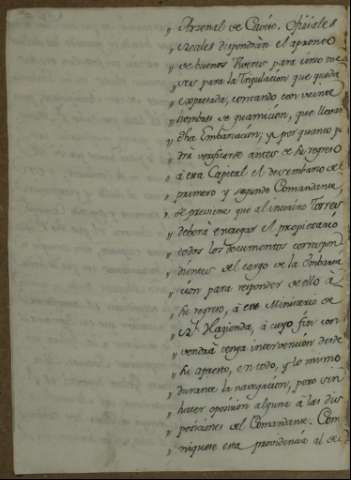 „ Arsenal de Cavite. Oficiales
„ Reales dispondràn el apronto
„ de buenos Viveres para cinco me
„ ses para la Tripulación que queda
„ expresada, contando con veinte
„ hombres de guarnicion, que llevará
„ dha Embarcación; y por quanto po
„ drà verificarse antes de su regreso
„ à esta Capital el desembarco del
„ primero y segundo Comandante,
„ se previene que al interino Torres
„ deberà entregar el propietario
„ todos los documentos correspon
„ dientes del cargo de la Embarca
„ ción para responder de ello à
„ su regreso, à este Ministerio de
„ Rl. Hazienda, à cuyo fin con
„ vendrà tenga intervención desde
„ su apresto, en todo, y lo mismo
„ durante la navegacion, pero sin
„ hazer oposicion alguna à las dis
„ posiciones del Comandante. Com
„ niquese esta providencia al